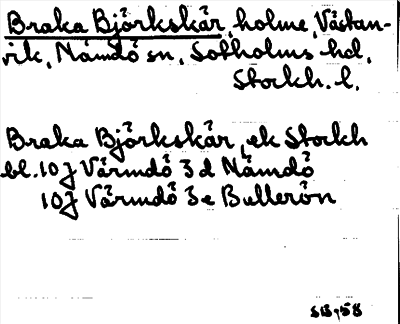 Braka Björkskär, holme, Västan-
vik, Nämdö sn, Sotholms hd,
Stockh. l.
Braka Björkskär, ek Stockh
bl. 10J Värmdö 3d Nämdö
10J Värmdö 3e Bullerön
SB, 58